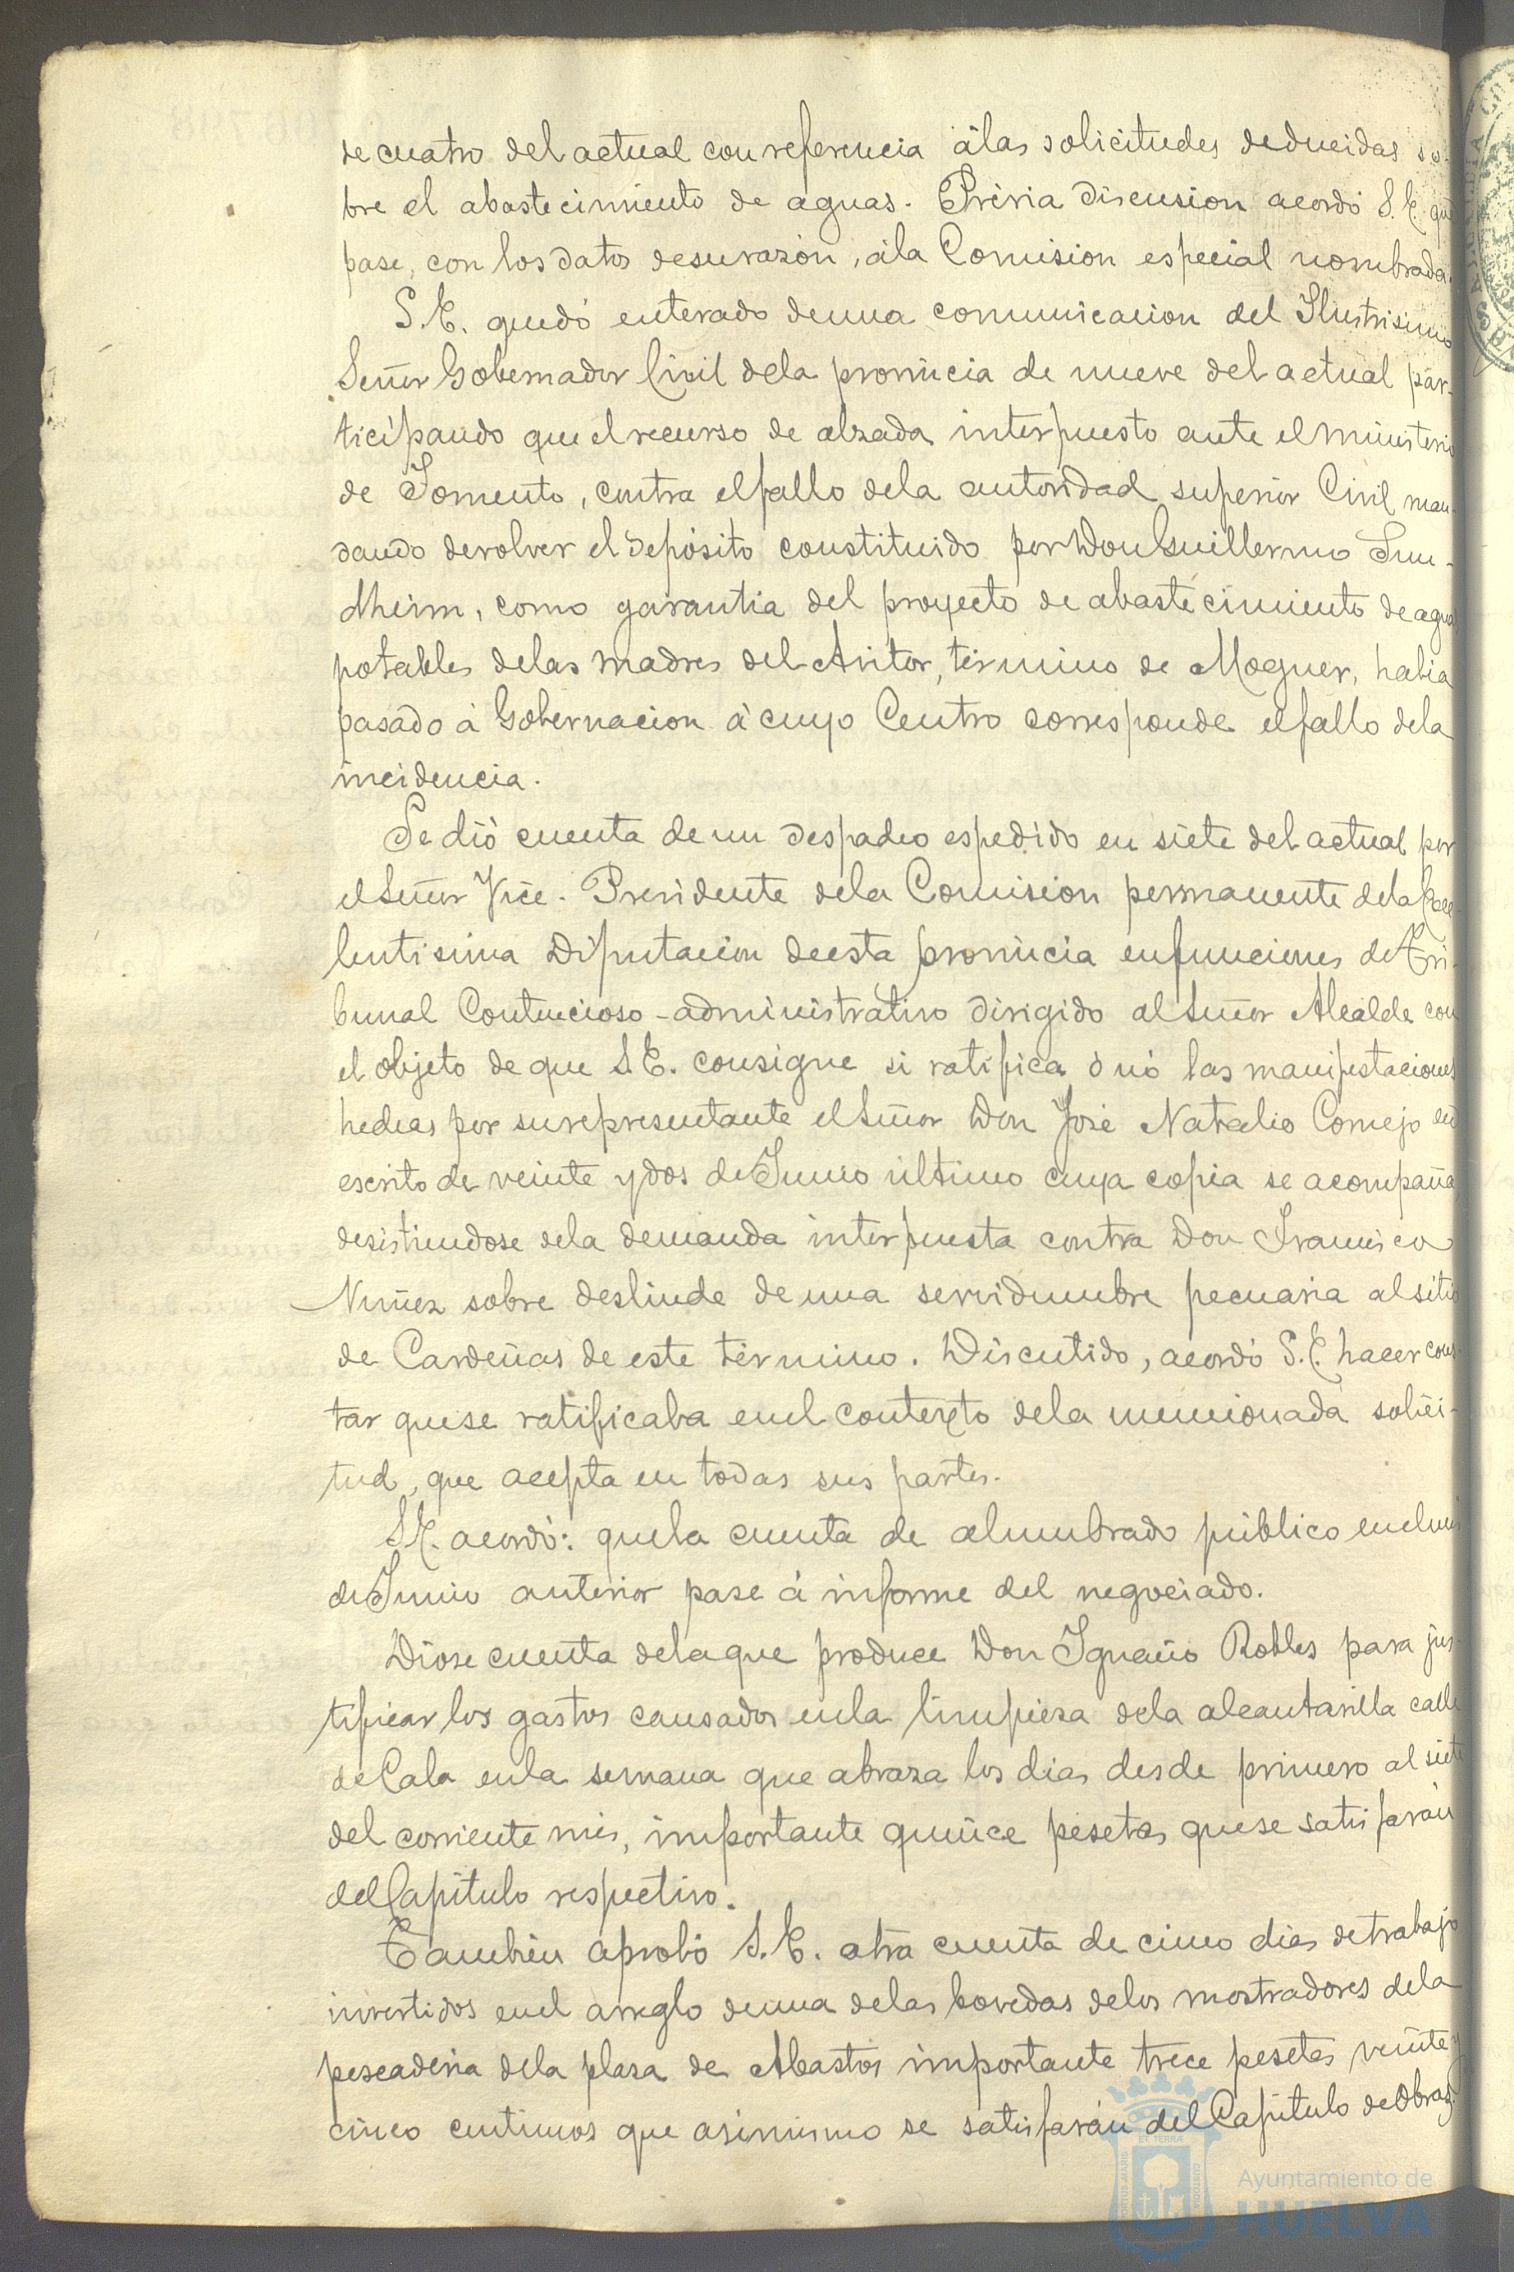 de cuatro del actual con referencia á las solicitudes deducidas so-
bre el abastecimiento de aguas. Prévia discusion acordó S.E. que
pase, con los datos de su razón, á la Comision especial nombrada.
S.E. quedó enterado de una comunicacion del Ilustrisimo
Señor Gobernador Civil de la provincia de nueve del actual par-
ticipando que el recurso de alzada interpuesto ante el ministerio
de Fomento, contra el fallo de la autoridad superior Civil man-
dando devolver el depósito constituido por Don Guillermo Sun-
dheim, como garantia del proyecto de abastecimiento de aguas
potables de las madres del Avitor, término de Moguer, habia
pasado á Gobernacion á cuyo Centro corresponde el fallo de la
incidencia.
Se dió cuenta de un despacho espedido en siete del actual por
el Señor Vice-Presidente de la Comision permanente de la Exce-
lentisima Diputacion de esta provincia en funciones de Tri-
bunal Contencioso-administrativo dirigido al Señor Alcalde con
el objeto de que S.E. consigne si ratifica ó nó las manifestaciones
hechas por su representante el Señor Don José Natalio Cornejo en
escrito de veinte y dos de Junio último cuya copia se acompaña,
desistiendose de la demanda interpuesta contra Don Francisco
Nuñez sobre deslinde de una servidumbre pecuaria al sitio
de Cardeñas de este término. Discutido, acordó S.E. hacer cons-
tar que se ratificaba en el contexto de la mencionada solici-
tud, que acepta en todas sus partes.
S.E. acordó: que la cuenta de alumbrado público en el mes
de Junio anterior pase á informe del negociado.
Diose cuenta de la que produce Don Ignacio Robles para jus-
tificar los gastos causados en la limpieza de la alcantarilla calle
de Cala en la semana que abraza los dias desde primero al siete
del corriente mes, importante quince pesetas que se satisfarán
del Capítulo respectivo.
Tambien aprobó S.E. otra cuenta de cinco dias de trabajo
invertidos en el arreglo de una de las bovedas de los mostradores de la
pescaderia de la plaza de Abastos importante trece pesetas veinte y
cinco centimos que asimismo se satisfarán del Capítulo de Obras.
Ayuntamiento de
HUELVA